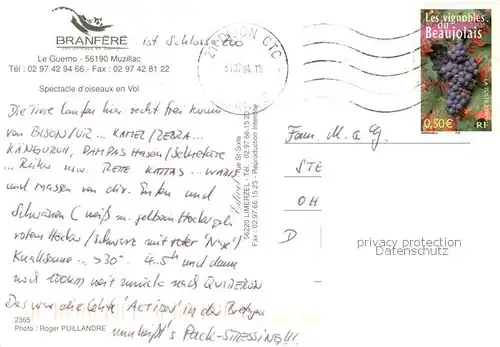 BRANFÉRÉ
ist Schlosszoo
Le Guerno - 56190 Muzillac
Tél : 02 97 42 94 66 - Fax : 02 97 42 81 22
Spectacle d'oiseaux en Vol
Die Tiere laufen hier recht frei herum
von BISON/UR ... KAMEL/ZEBRA...
KÄNGURUH, PAMPAS Hasen/Sekretäre
... usw. ROTE KATTAS ... WARIS
und massen von div. Enten und
Schwänen ( weiß m. gelbem
rotem Höcker/schwarz mit roter 'Nase')
Knallsonne ... >30° 4.. 5h und dann
noch 100km weit zurück nach QUIBERON
Das war die letzte 'ACTION' in der Bretagne
nun heißt's Pack-STRESSING!!!
2365
Photo : Roger PUILLANDRE
rue St-Sixte
56220 LIMERZEL - Tél : 02.97.66.15.20
Fax : 02.97.66.15.23 - Reproduction Interdite
CTC
Les vignobles
du
Beaujolais
0,50€
RF
LA POSTE
Fam. M. & G.
STE
OH
D
privacy protection
Datenschutz